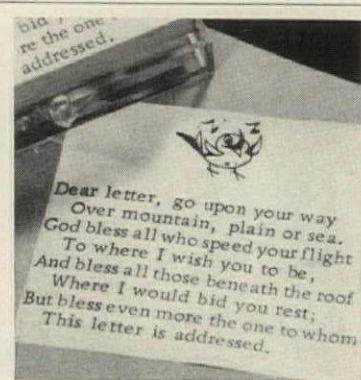 bid
re the one
addressed.
Dear letter, go upon your way
Over mountain, plain or sea.
God bless all who speed your flight
To where I wish you to be,
And bless all those beneath the roof
Where I would bid you rest;
But bless even more the one to whom
This letter is addressed.